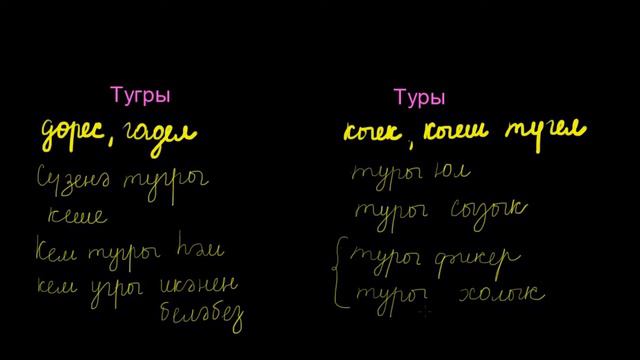 Тугры
дөрес, гадел
Сүзенә тугры
кеше
Кем тугры һәм
кем угры икәнен
беләбез
Туры
кәкре, кыеш түгел
туры юл
туры сызык
туры фикер
туры холык